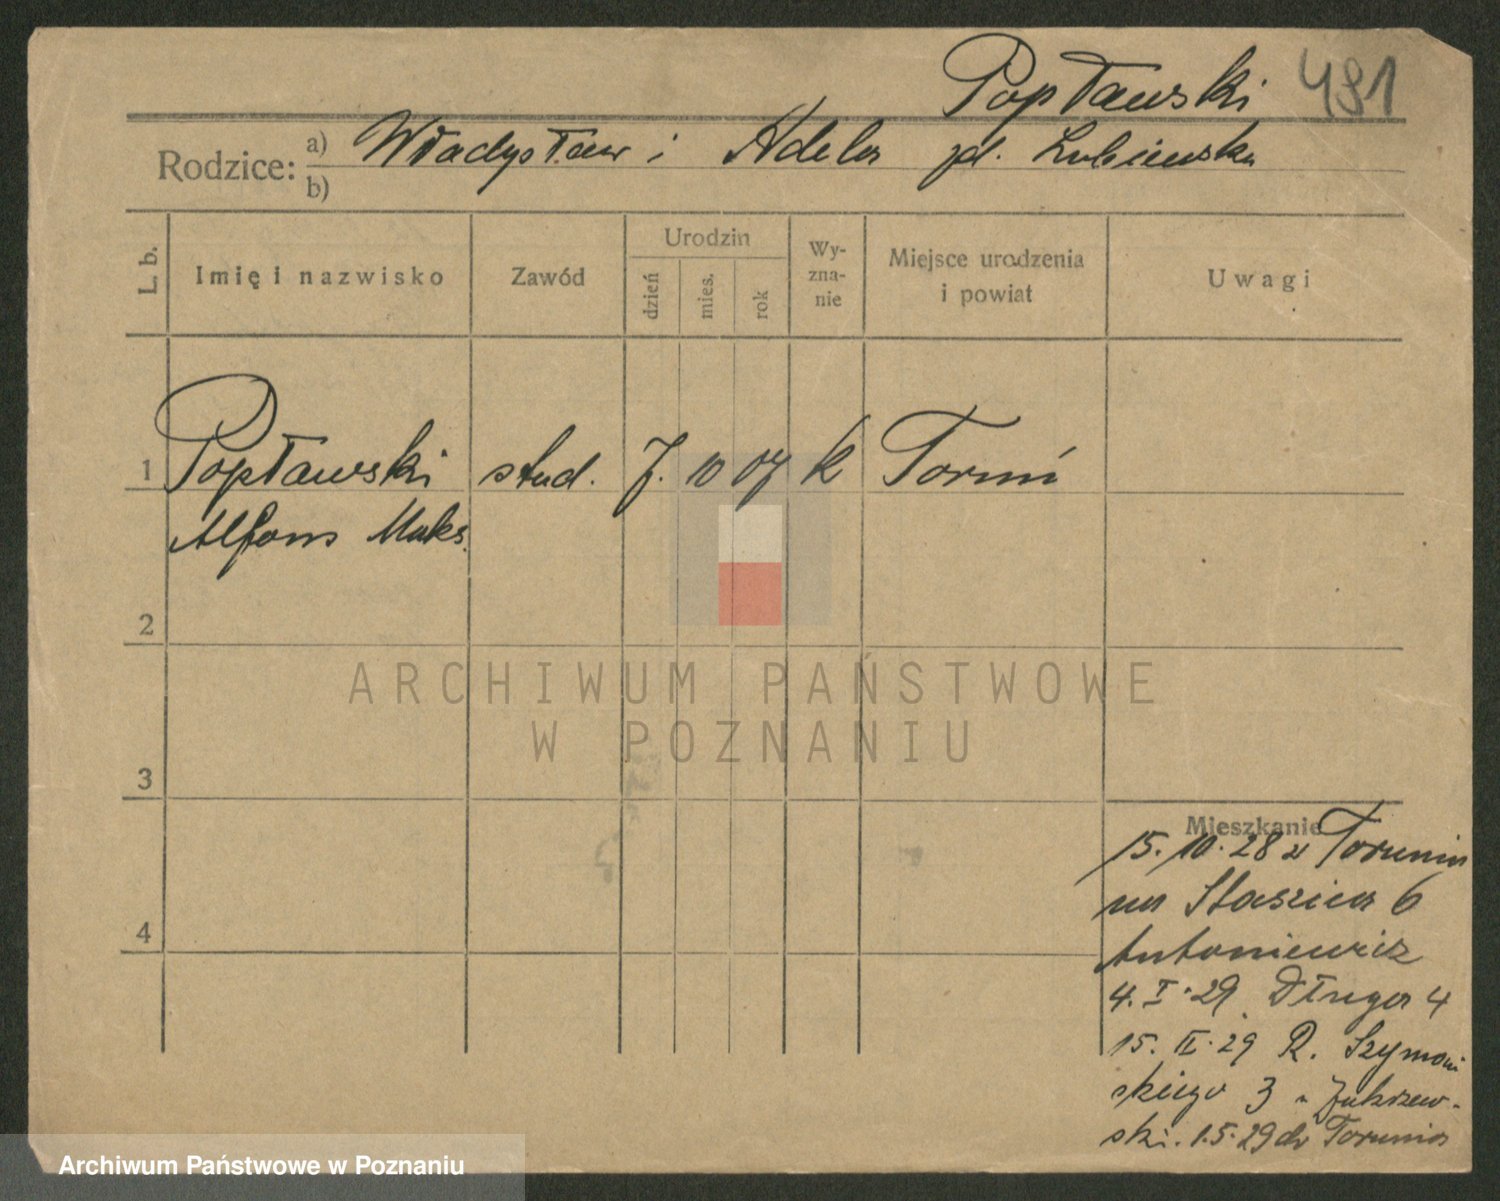 Popławski 491
Rodzice: a) Władysław i Adela zd. Lubieńska
b)
L. b. Imię i nazwisko Zawód Urodzin dzień mies. rok Wy-zna-nie Miejsce urodzenia i powiat Uwagi
1 Popławski stud. 7. 10 07 k Toruń
Alfons Maks.
2
ARCHIWUM PAŃSTWOWE
W POZNANIU
3
Mieszkanie
15.10.28 z Torunia
na Staszica 6
Antoniewicz
4. I. 29. Długa 4
15. II. 29 R. Szymań
skiego 3
ski. 1.5.29 do Torunia
Archiwum Państwowe w Poznaniu
4